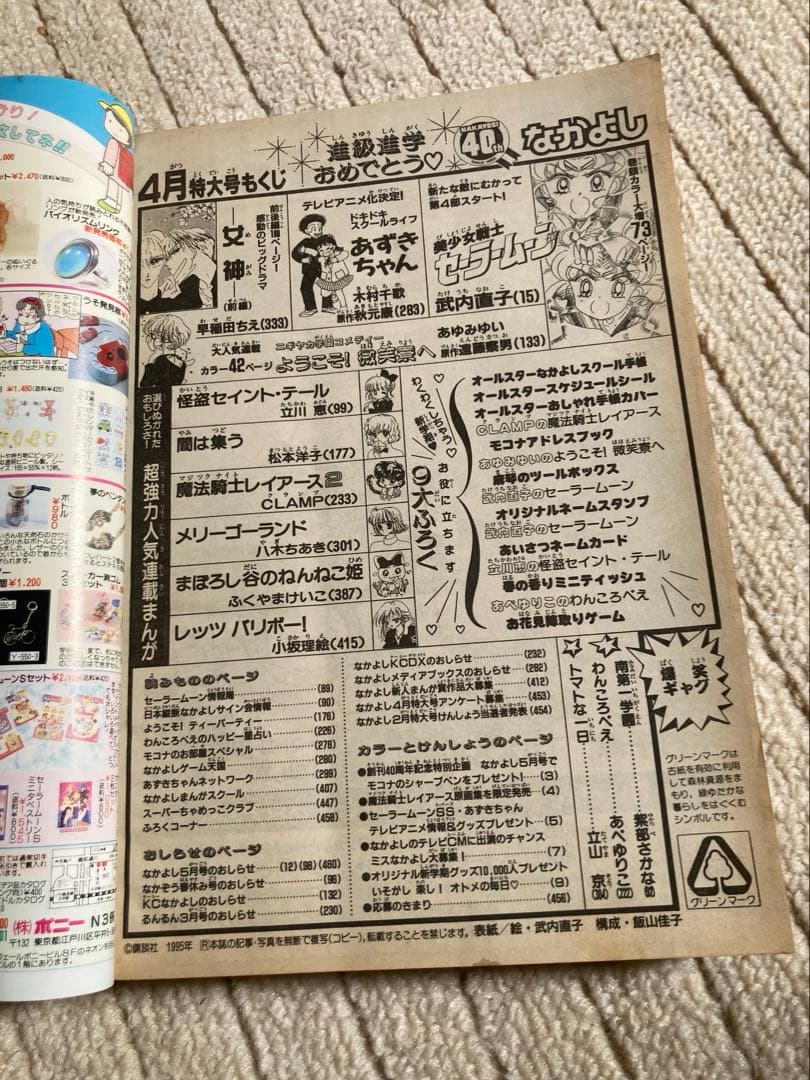 進級進学
おめでとう♡
NAKAYOSI
40th
なかよし
4月特大号もくじ
巻頭カラー大増73ページ!
新たな敵にむかって
第4部スタート!
美少女戦士
セーラームーン
武内直子(15)
テレビアニメ化決定!
ドキドキ
スクールライフ
あずき
ちゃん
木村千歌
原作秋元康(283)
前後編108ページ
感動のビッグドラマ
女神
(前編)
早稲田ちえ(333)
大人気連載
カラー42ページ
ニギヤカ学園コメディー
ようこそ!微笑寮へ
あゆみゆい
原作遠藤察男(133)
選びぬかれた
おもしろさ!
超強力人気連載まんが
怪盗セイント・テール
立川恵(99)
闇は集う
松本洋子(177)
魔法騎士レイアース2
マジックナイト
CLAMP(233)
クランプ
メリーゴーランド
八木ちあき(301)
まぼろし谷のねんねこ姫
ふくやまけいこ(387)
レッツ バリボー!
小坂理絵(415)
わくわくしちゃう♡
新学期
お役に立ちます
9大ふろく
オールスターなかよしスクール手帳
オールスタースケジュールシール
オールスターおしゃれ手帳カバー
CLAMPの魔法騎士レイアース
モコナアドレスブック
あゆみゆいのようこそ!微笑寮へ
麻琴のツールボックス
武内直子のセーラームーン
オリジナルネームスタンプ
武内直子のセーラームーン
あいさつネームカード
立川恵の怪盗セイント・テール
春の香りミニティッシュ
あべゆりこのわんころべえ
お花見陣取りゲーム
読みもののページ
セーラームーン情報局(89)
日本縦断なかよしサイン会情報(90)
ようこそ!ティーパーティー(176)
わんころべえのハッピー星占い(226)
モコナのお部屋スペシャル(278)
なかよしゲーム天国(280)
あずきちゃんネットワーク(299)
なかよしまんがスクール(407)
スーパーちゅめっこクラブ(447)
ふろくコーナー(458)
おしらせのページ
なかよし5月号のおしらせ(12)(98)(460)
なかぞう春休み号のおしらせ(96)
KCなかよしのおしらせ(132)
るんるん3月号のおしらせ(230)
なかよしKCDXのおしらせ(232)
なかよしメディアブックスのおしらせ(282)
なかよし新人まんが賞作品大募集(412)
なかよし4月特大号アンケート募集(453)
なかよし2月特大号けんしょう当選者発表(454)
カラーとけんしょうのページ
●創刊40周年記念特別企画 なかよし5月号で
モコナのシャープペンをプレゼント!(3)
●魔法騎士レイアース原画集を限定発売(4)
●セーラームーンSS・あずきちゃん
テレビアニメ情報&グッズプレゼント(5)
●なかよしのテレビCMに出演のチャンス
ミスなかよし大募集!(7)
●オリジナル新学期グッズ10,000人プレゼント
いそがし楽し!オトメの毎日♡(9)
●応募のきまり(456)
爆笑
ギャグ
南第一学園
紫部さかな
わんころべえ
あべゆりこ
トマトな一日
立山京
グリーンマークは
古紙を有効に利用
して森林資源をま
もり、緑ゆたかな
暮らしをはぐくむ
シンボルです。
グリーンマーク
©講談社 1995年 Ⓡ本誌の記事・写真を無断で複写(コピー)、転載することを禁じます。表紙/絵・武内直子 構成・飯山佳子
¥2,470
バイオリズムリング
¥1,480(送料¥420)
¥980
¥1,200
Y-550-3
(株)ポニー
〒132 東京都江戸川区平井